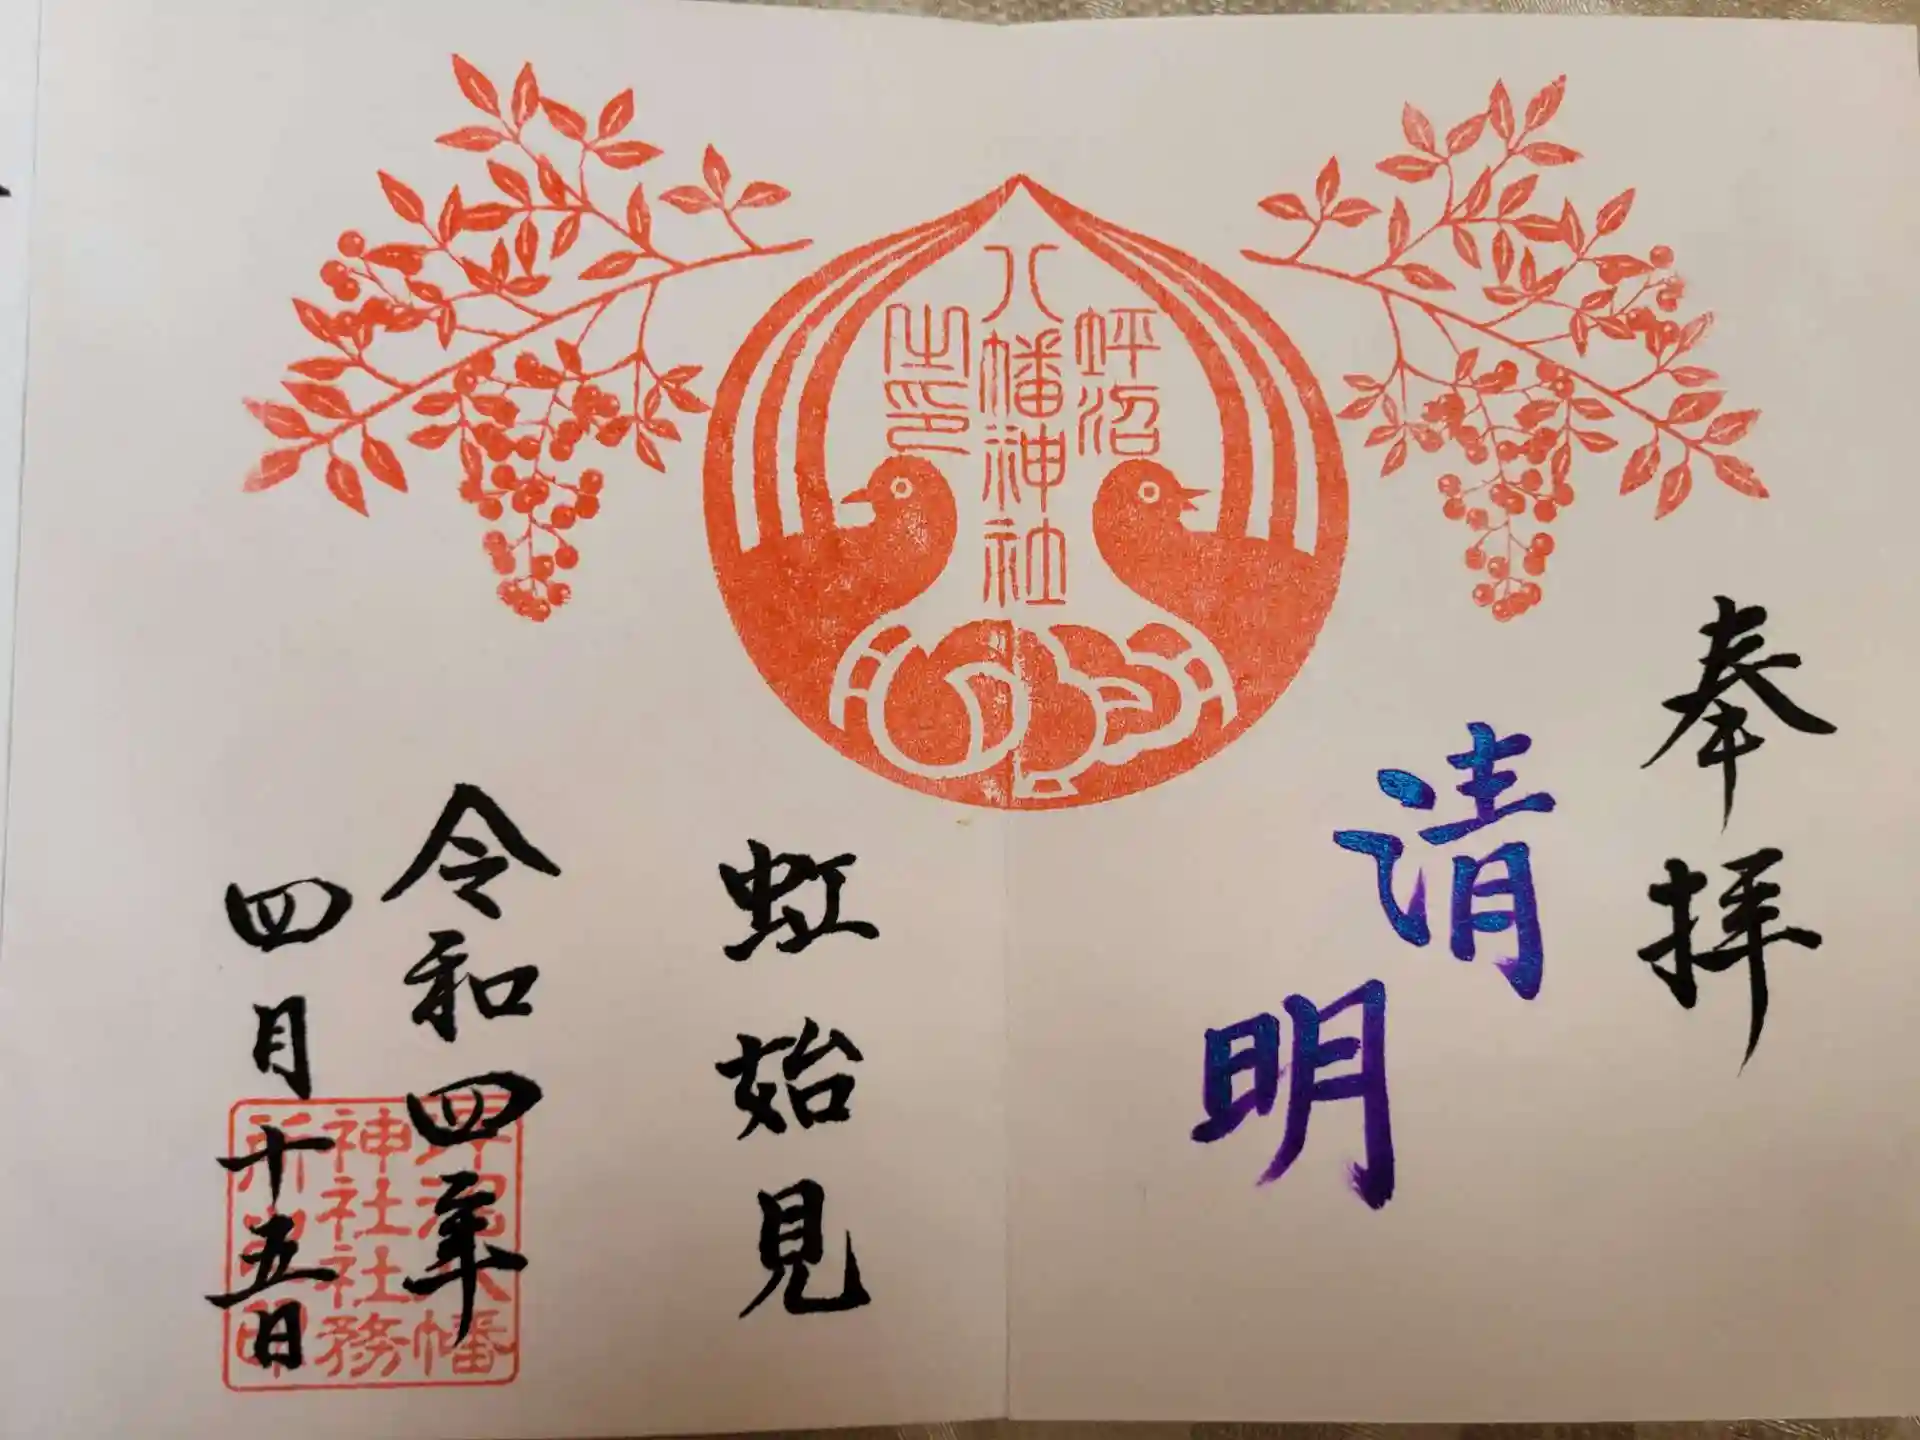 奉拝
清明
坪沼
八幡神社
之印
虹始見
令和四年
四月十五日
坪沼八幡
神社社務
所之印